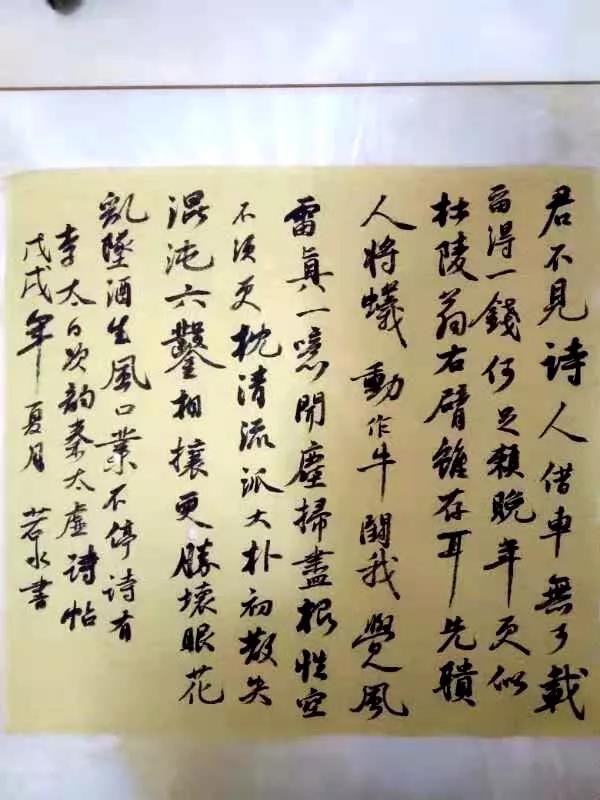 君不見詩人借車無可載
留得一錢何足賴晚年更似
杜陵翁右臂雖存耳先聵
人將蟻動作牛鬪我覺風
雷真一噫聞塵掃盡根性空
不須更枕清流派大朴初散失
混沌六鑿相攘更勝壞眼花
亂墜酒生風口業不停詩有
李太白次韵秦太虛詩帖
戊戌年夏月 若水書